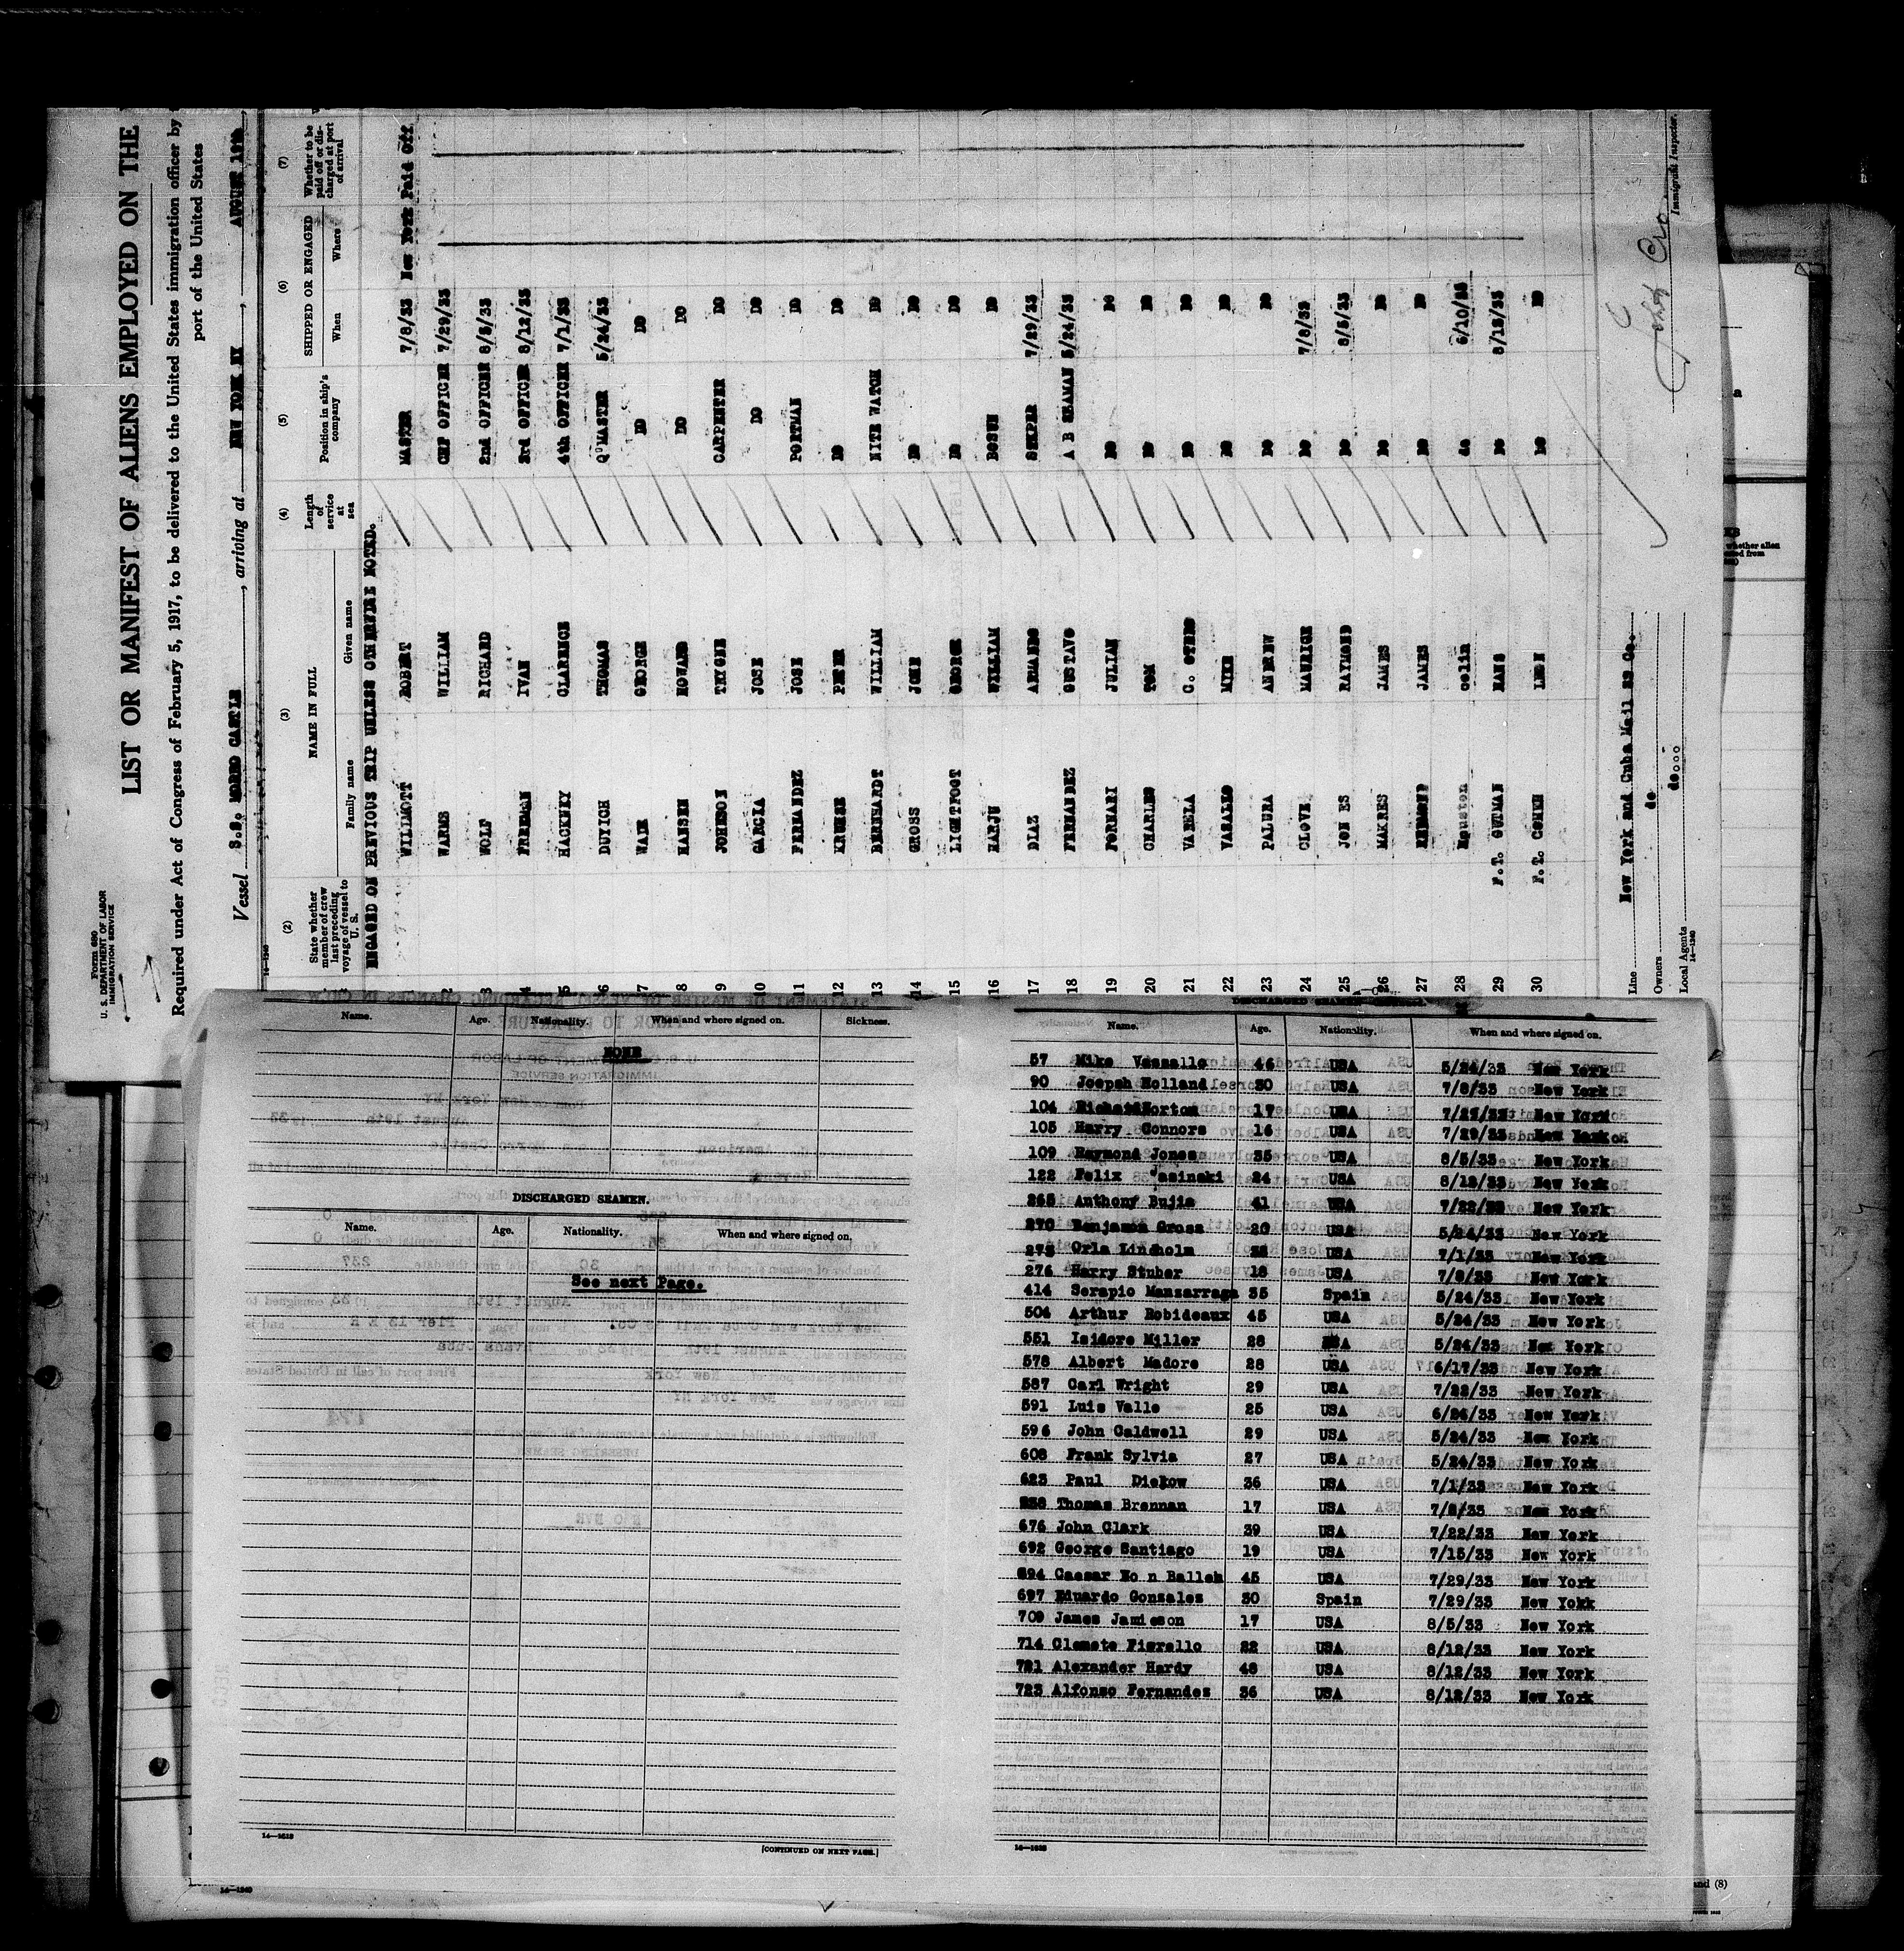 Form 680
U. S. DEPARTMENT OF LABOR
IMMIGRATION SERVICE
LIST OR MANIFEST OF ALIENS EMPLOYED ON THE
Required under Act of Congress of February 5, 1917, to be delivered to the United States immigration officer by
port of the United States
Vessel S.S. MORRO CASTLE, arriving at NEW YORK NY, AUGUST 19th,
14—1240
(2) (3) (4) (5) (6) (7)
State whether member of crew last preceding voyage of vessel to U. S.
NAME IN FULL
Family name Given name
Length of service at sea
Position in ship's company
SHIPPED OR ENGAGED
When Where
Whether to be paid off or discharged at port of arrival
ENGAGED ON PREVIOUS TRIP UNLESS OTHERWISE NOTED.
WILLMOTT ROBERT MASTER 7/8/33 New York Paid Off
2 WARMS WILLIAM CHF OFFICER 7/29/33
3 WOLF RICHARD 2nd OFFICER 8/5/33
4 FREEMAN IVAN 3rd OFFICER 8/12/33
5 HACKNEY CLARENCE 4th OFFICER 7/1/33
6 DUYICH THOMAS Q'MASTER 5/24/33
7 WAIE GEORGE DO DO
8 HANSEN HOWARD DO DO
9 JOHNSON TRYGNE CARPENTER DO
10 GARCIA JOSE DO DO
11 FERNANDEZ JOSE PORTMAN DO
12 KRUESE PETER DO DO
13 BERNHARDT WILLIAM NITE WATCH DO
14 GROSS JOHN DO DO
15 LIGHTFOOT GEORGE DO DO
16 HARJU WILLIAM BOSUN DO
17 DIAZ ARMANDO STKPER 7/29/33
18 FERNANDEZ GUSTAVO A B SEAMAN 5/24/33
19 FORNARI JULIAN DO DO
20 CHARLES TOM DO DO
21 VARELA C. OTERO DO DO
22 VASALLO MIKE DO DO
23 PALURA ANDREW DO DO
24 CLOVE MAURICE DO 7/8/33
25 JON ES RAYMOND DO 8/5/33
26 MAKRES JAMES DO DO
27 REYMOND JAMES DO DO
28 Houston colin do 6/10/33
29 F.T. GUTMAN HANS DO 8/12/33
30 F.T. COHEN LEON DO DO
Line New York and Cuba Mail SS Co.
Owners do
Local Agents do
14—1240
Immigrant Inspector.
Name. Age. Nationality. When and where signed on. Sickness.
NONE
DISCHARGED SEAMEN.
Name. Age. Nationality. When and where signed on.
See next Page.
14—1513
[CONTINUED ON NEXT PAGE.]
14—1240
Name. Age. Nationality. When and where signed on.
57 Mike Vassallo 46 USA 5/24/33 New York
90 Joepsh Holland 30 USA 7/8/33 New York
104 Horton 17 USA New York
105 Harry Connors 16 USA 7/29/33 New York
109 Raymond Jones 35 USA 8/5/33 New York
122 Felix Jasinski 24 USA 8/12/33 New York
265 Anthony Bujia 41 USA 7/22/33 New York
270 Benjaman Gross 20 USA 5/24/33 New York
Orla Lindholm USA 7/1/33 New York
276 Harry Stuher 18 USA 7/8/33 New York
414 Serapio Manzarraga 35 Spain 5/24/33 New York
504 Arthur Robideaux 45 USA 5/24/33 New York
551 Isidore Miller 28 USA 5/24/33 New York
578 Albert Madore 28 USA 6/17/33 New York
587 Carl Wright 29 USA 7/22/33 New York
591 Luis Valle 25 USA 6/24/33 New York
596 John Caldwell 29 USA 5/24/33 New York
608 Frank Sylvia 27 USA 5/24/33 New York
623 Paul Diekow 36 USA 7/1/33 New York
Thomas Brennan 17 USA 7/8/33 New York
676 John Clark 39 USA 7/22/33 New York
692 George Santiago 19 USA 7/15/33 New York
694 Caesar No n Balleh 45 USA 7/29/33 New York
697 Eduardo Gonzales 30 Spain 7/29/33 New Yokk
709 James Jamieson 17 USA 8/5/33 New York
714 Clemete Pigrallo 22 USA 8/12/33 New York
721 Alexander Hardy 48 USA 8/12/33 New York
723 Alfonso Fernandez 36 USA 8/12/33 New York
and (8)